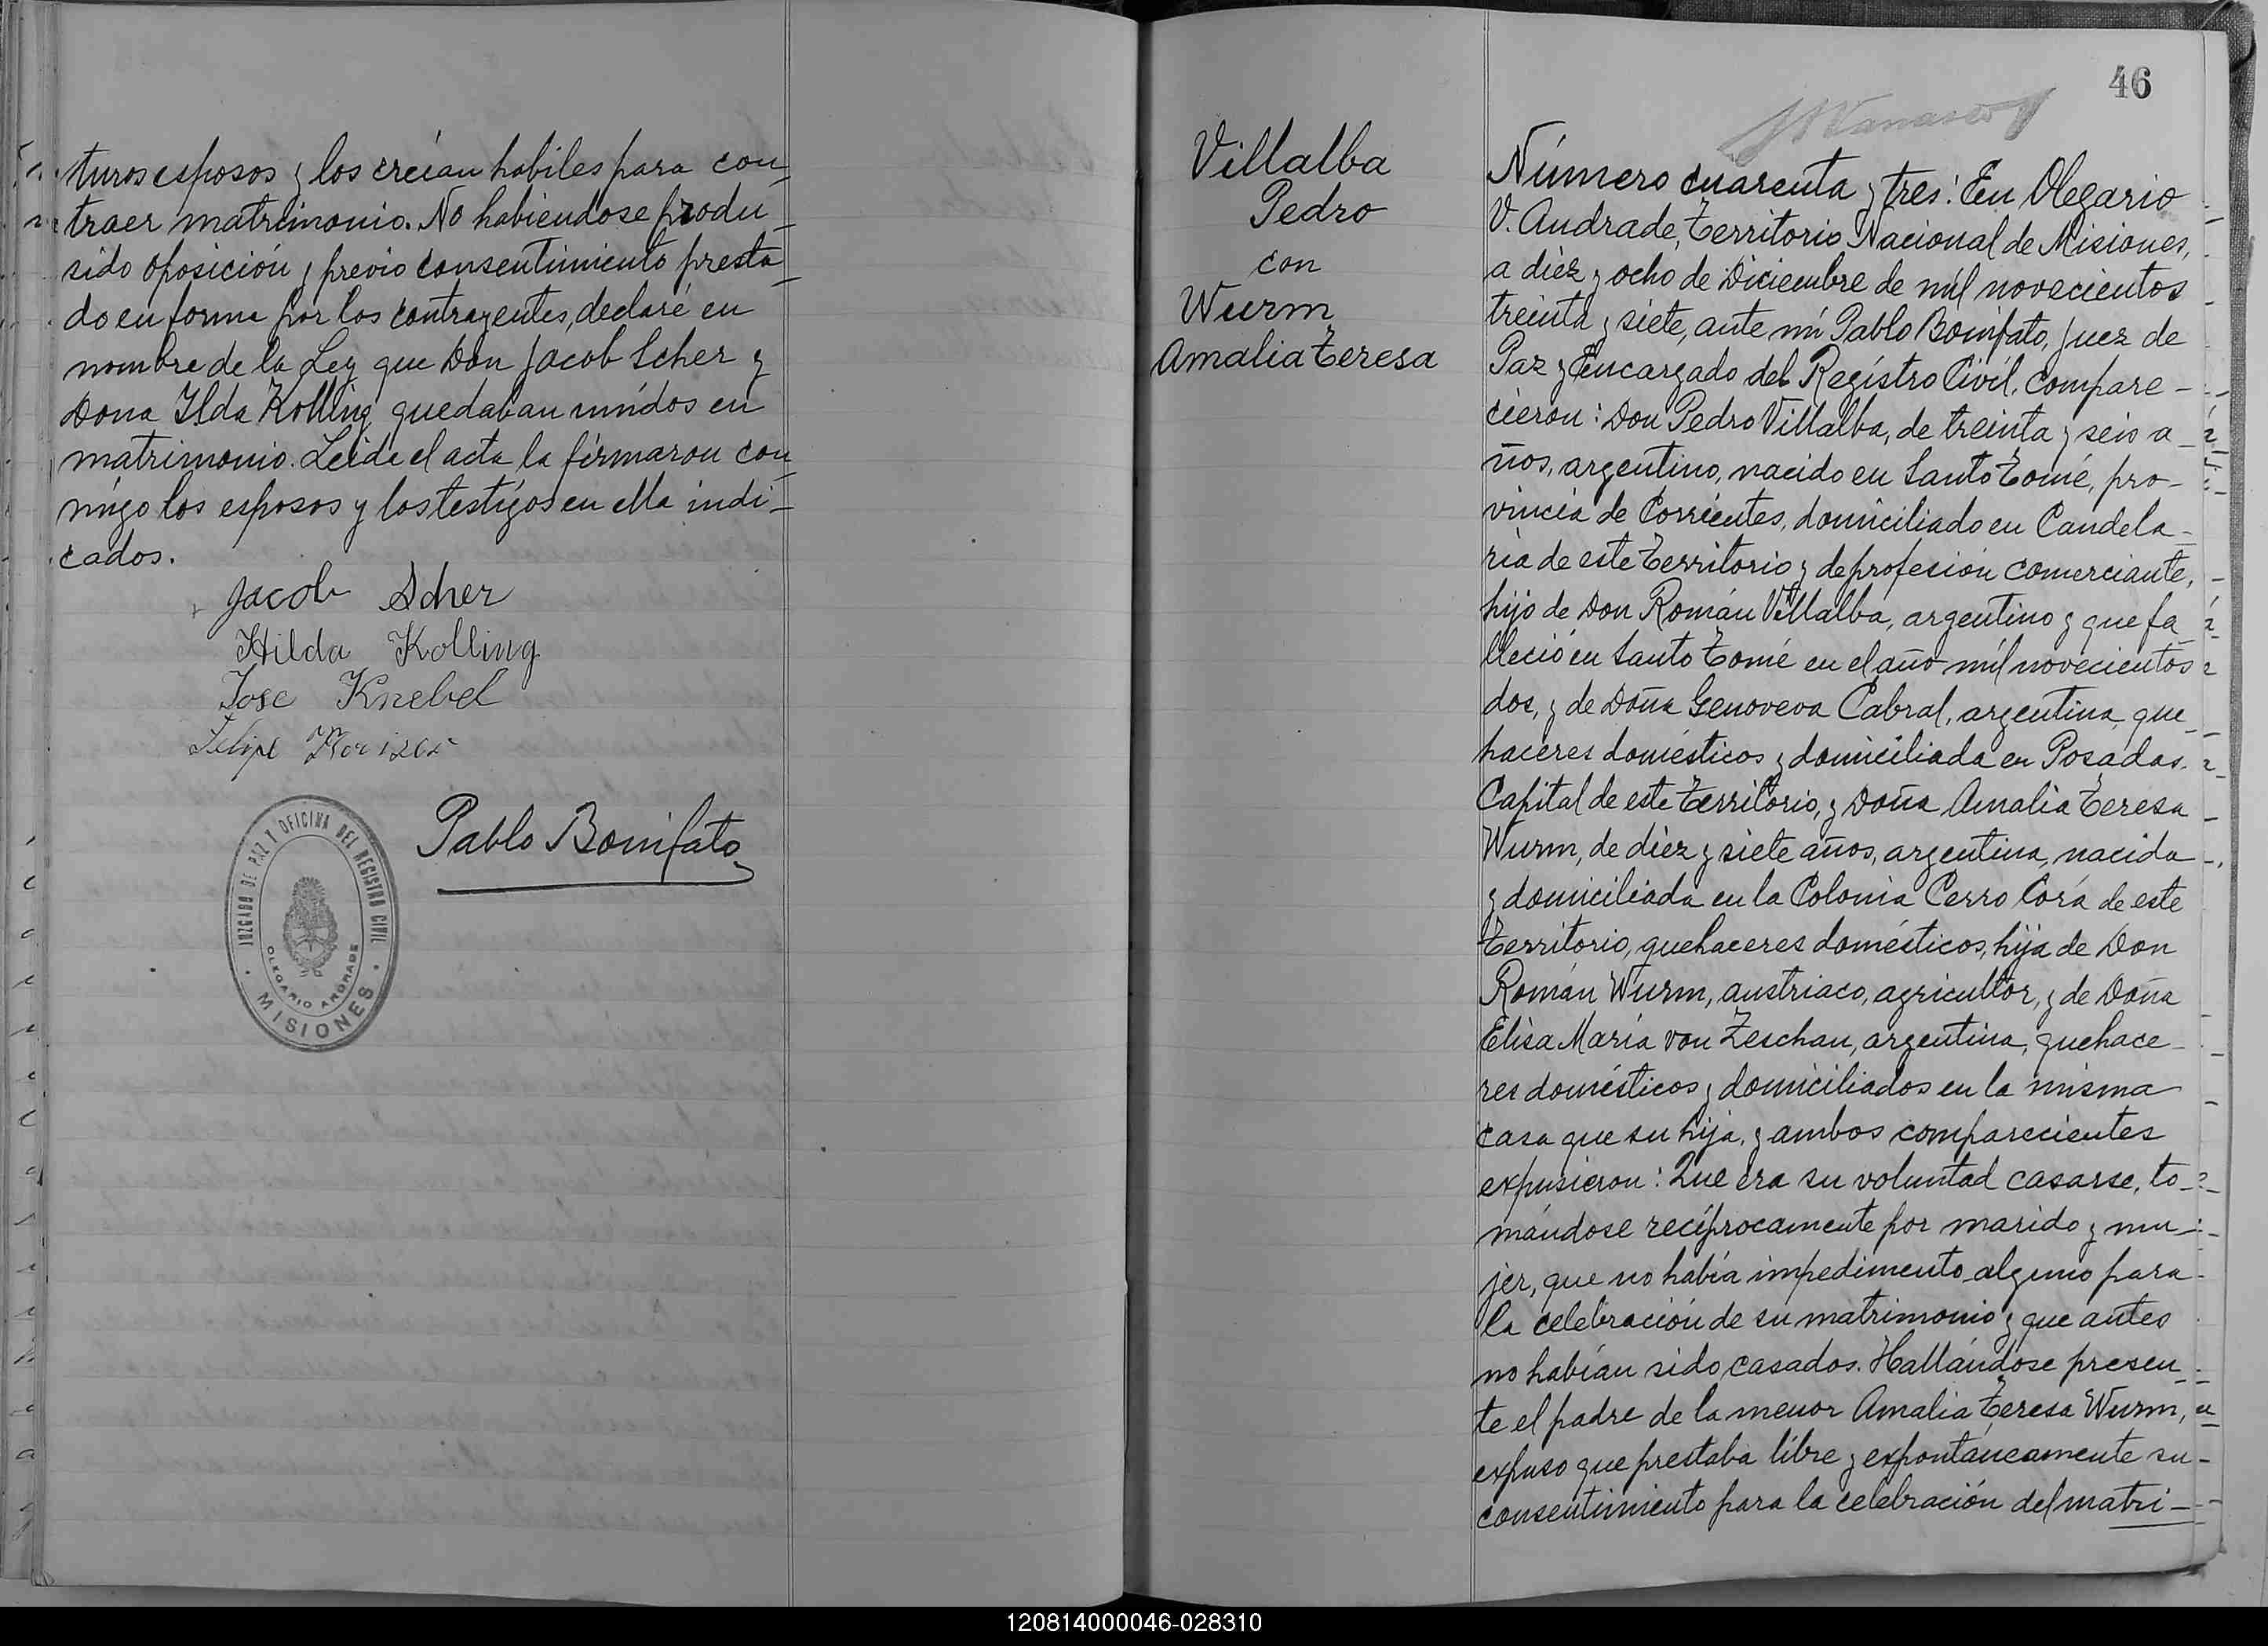 turos esposos y los creían habiles para con_
traer matrimonio. No habiendose produ_
sido oposición y previo consentimiento presta_
do en forma por los contrayentes, declaré en
nombre de la Ley que Don Jacob Scher y
Dona Ilda Kolling quedaban unidos en
matrimonio. Leida el acta la firmaron con_
migo los esposos y los testigos en ella indi_
cados.
Jacob Scher
Hilda Kolling
Jose Knebel
Felipe
Pablo Bonifato
JUZGADO DE PAZ Y OFICINA DEL REGISTRO CIVIL
OLEGARIO ANDRADE
· MISIONES ·
46
Villalba
Pedro
con
Wurm
Amalia Teresa
Número cuarenta y tres: En Olegario
V. Andrade, Territorio Nacional de Misiones,
a diez y ocho de Diciembre de mil novecientos
treinta y siete, ante mi Pablo Bonifato, Juez de
Paz y Encargado del Registro Civil, compare-
cieron: Don Pedro Villalba, de treinta y seis a_
ños, argentino, nacido en Santo Tomé, pro-
vincia de Corrientes, domiciliado en Candela_
ria de este Territorio y de profesión comerciante,
hijo de Don Román Villalba, argentino y que fa_
lleció en Santo Tomé en el año mil novecientos
dos, y de Doña Genoveva Cabral, argentina, que_
haceres domésticos y domiciliada en Posadas,
Capital de este Territorio, y Doña Amalia Teresa
Wurm, de diez y siete años, argentina, nacida
y domiciliada en la Colonia Cerro Corá de este
Territorio, quehaceres domésticos, hija de Don
Román Wurm, austriaco, agricultor, y de Doña
Elisa María von Zeschau, argentina, quehace_
res domésticos y domiciliados en la misma
casa que su hija, y ambos comparecientes
expusieron: Que era su voluntad casarse, to_
mándose recíprocamente por marido y mu_
jer, que no había impedimento alguno para
la celebración de su matrimonio y que antes
no habían sido casados. Hallándose presen_
te el padre de la menor Amalia Teresa Wurm,
expuso que prestaba libre y expontáneamente su
consentimiento para la celebración del matri_
120814000046-028310